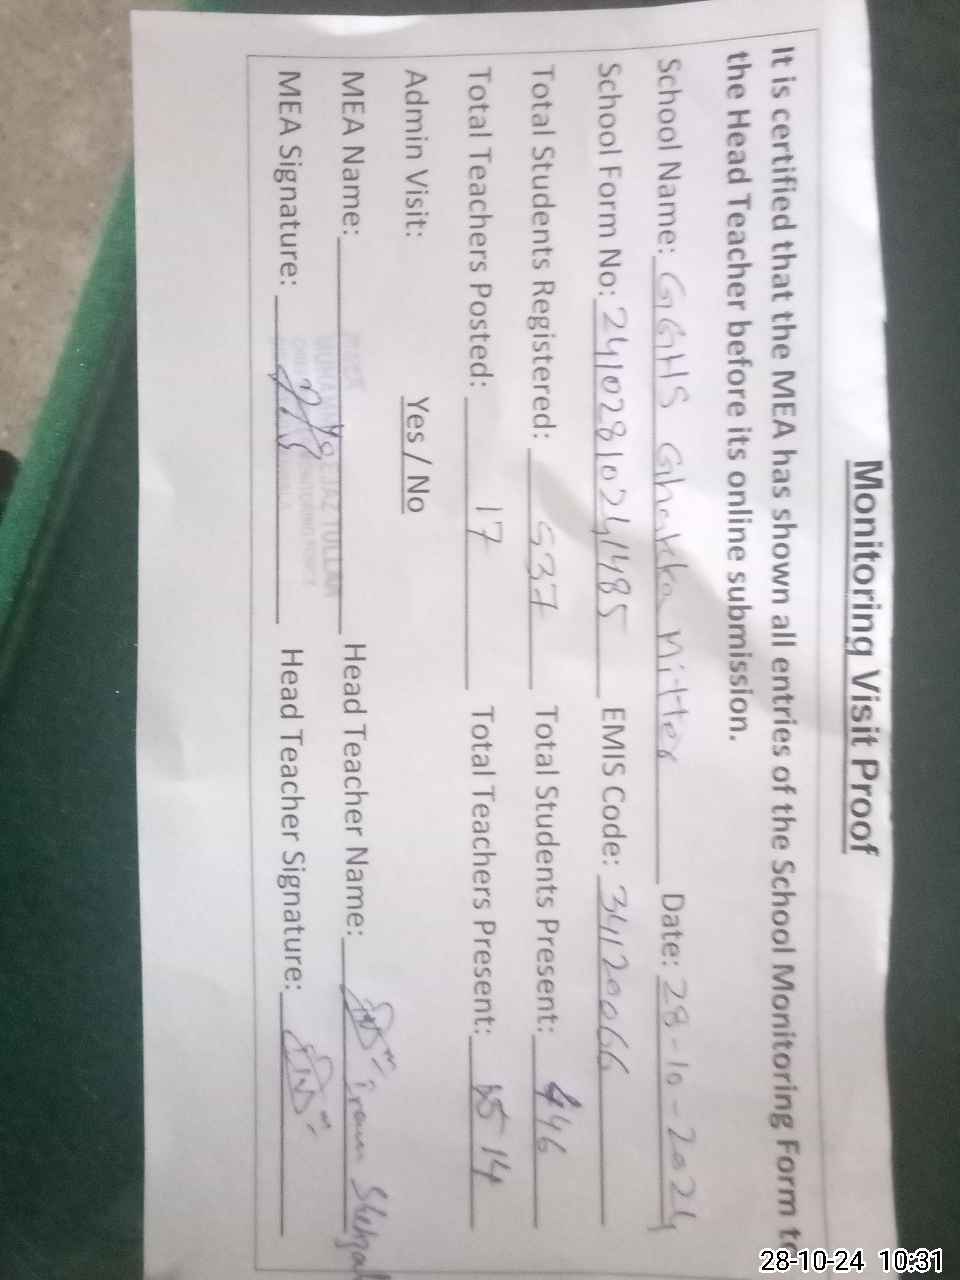 Monitoring Visit Proof
It is certified that the MEA has shown all entries of the School Monitoring Form to
the Head Teacher before its online submission.
School Name: GGHS Ghakka Mitter Date: 28-10-2024
School Form No: 24102810241485 EMIS Code: 34120066
Total Students Registered: 537 Total Students Present: 446
Total Teachers Posted: 17 Total Teachers Present: 14
Admin Visit: Yes / No
MEA Name: Head Teacher Name: iram Shehzal
MEA Signature: Head Teacher Signature:
28-10-24 10:31